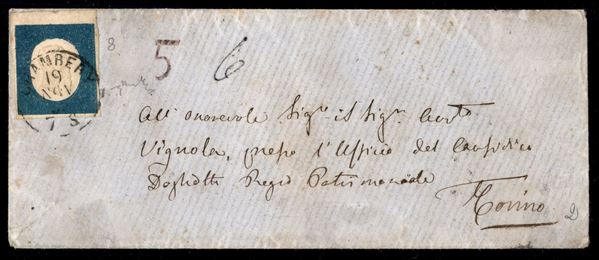 CHAMBERY
19
NOV
7 S
8
5 6
All' onorevole Sigr il Sigr
Vignola, presso l'Ufficio del Causidico
Regio Patrimoniale
Torino